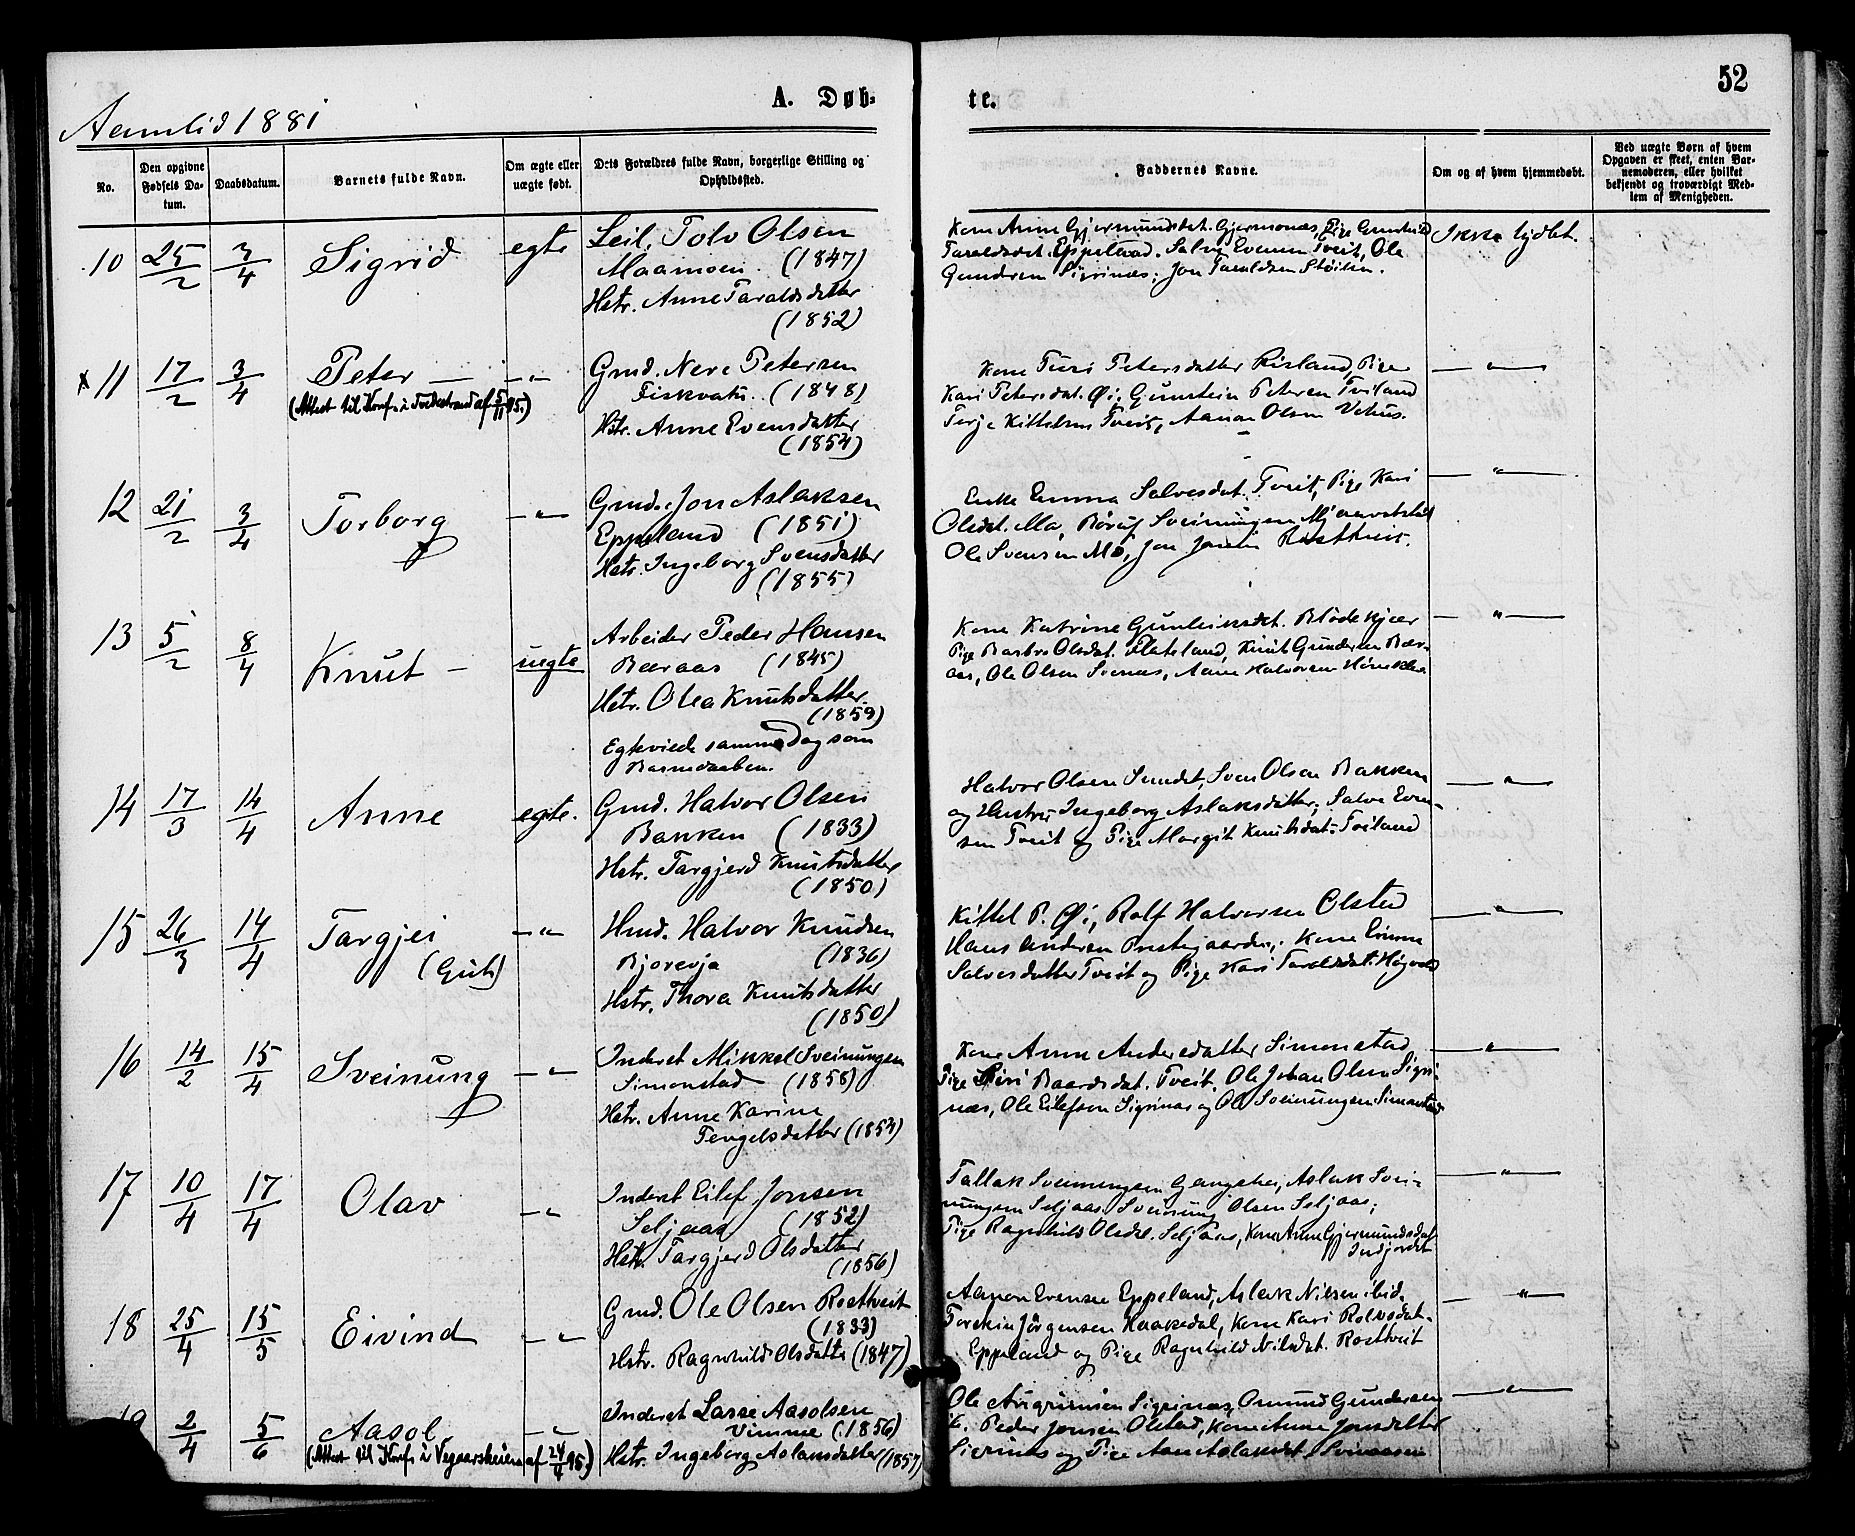 52
A. Døb-
te.
Aamlid 1881
No.
Den opgivne Fødsels Da-tum.
Daabsdatum.
Barnets fulde Navn.
Om ægte eller uægte født.
Dets Forældres fulde Navn, borgerlige Stilling og Opholdssted.
Faddernes Navne.
Om og af hvem hjemmedøbt.
Ved uægte Børn af hvem Opgaven er skeet, enten Bar-nemoderen, eller hvilket bekjendt og troværdigt Med-lem af Menigheden.
10 25/2 3/4 Sigrid egte Leil. Tolv Olsen
Maamoen. (1847)
Hstr. Anne Taraldsdatter
(1852)
Kone Anne Gjermundsdat. Gjermonæs, Pige Gunhild
Taraldsdat. Eppeland. Salve Evensen Tveit, Ole
Gundersen Sigrinæs; Jon Taraldsen Støilen.
Ikke hjdbt.
x 11 17/2 3/4 Peter — — " — Gmd. Nere Petersen
(Attest til Konf. i Tvedestrand af 5/11 95.) Fiskvatn. (1848)
Hstr. Anne Evensdatter
(1854)
Kone Turi Petersdatter Risland, Pige
Kari Petersdat. Øi, Gunstein Petersen Tveland
Terje Kittelsen Tveit, Aanon Olsen Vehus.
— " —
12 21/2 3/4 Torborg — " — Gmd. Jon Aslaksen
Eppeland (1851)
Hstr. Ingeborg Svensdatter
(1855)
Enke Emma Salvesdat. Tveit, Pige Kari
Olsdat. Mo, Børuf Sveinungsen
Ole Svensen Mo, Jon Jonsen Rosthveit.
— " —
13 5/2 8/4 Knut — uegte Arbeider Peder Hansen
Beraas (1845)
Hstr. Olea Knutsdatter
(1859)
Egteviede samme Dag som
Barnedaaben.
Kone Katrine Gunleiksdat. Blødekjær
Pige Barbro Olsdat. Flateland, Knut Gundersen Ber-
aas, Ole Olsen
— " —
14 17/3 14/4 Anne egte. Gmd. Halvor Olsen
Bakken (1833)
Hstr. Targjerd Knutsdatter
(1850)
Halvor Olsen Sundet, Sven Olsen Bakken
og Hustru Ingeborg Aslaksdatter, Salve Even-
sen Tveit og Pige Margit Knutsdat. Tveland
— " —
15 26/3 14/4 Targjei — " — Hmd. Halvor Knudsen
(Gut) Bjorevja (1836)
Hstr. Thora Knutsdatter
(1850)
Kittel P. Øi, Rolf Halvorsen Olsted
Hans Andersen Prestegaarden, Kone Emma
Salvesdatter Tveit og Pige Kari Taraldsdat.
— " —
16 14/2 15/4 Sveinung — " — Inderst Mikkel Sveinungsen
Simonstad (1858)
Hstr. Anne Karine
Tengelsdatter (1854)
Kone Anne Andersdatter Simonstad
Pige Siri Baardsdat. Tveit, Ole Johan Olsen Sigri-
næs, Ole Eilefsen Sigrinæs og Ole Sveinungsen Simonstad
— " —
17 10/4 17/4 Olav — " — Inderst Eilef Jonsen
Seljaas (1852)
Hstr. Targjerd Olsdatter
(1856)
Tallak Sveinungsen Gangshei, Aslak Svei-
nungsen Seljaas, Sveinung Olsen Seljaas;
Pige Ragnhild Olsdat. Seljaas, Kone Anne Gjermundsdat.
— " —
18 25/4 15/5 Eivind — " — Gmd. Ole Olsen Rosthveit
(1833)
Hstr. Ragnhild Olsdatter (1847)
Aanon Evensen Eppeland, Aslak Nilsen ibid.
Torskin Jørgensen Haakedal, Kone Kari Rolvsdat.
Eppeland og Pige Ragnhild Nilsdat. Rosthveit
— " —
19 2/4 5/6 Aasol — " — Inderst Lasse Aasolsen
Vimme (1856)
(Attest til Konf. i Vegaarsheien af 24/4 95.) Hstr. Ingeborg Aslaksdatter (1857)
Ole Sigrinæs, Omund Gundersen
Peder Jonsen Olstad, Kone Anne Jonsdatter
Sigrinæs og Pige Aase Aslaksdat.
— " —